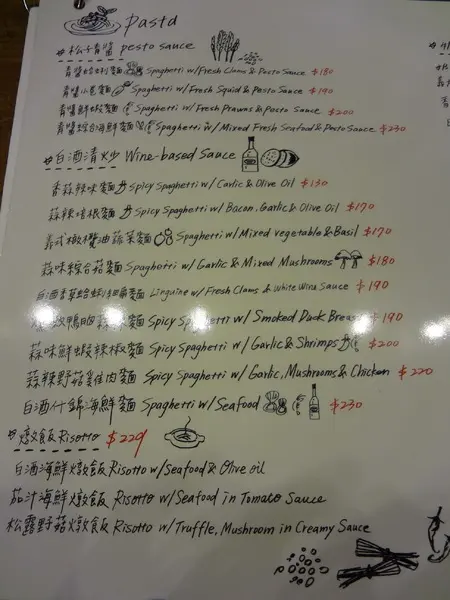 pasta
松子青醬 pesto sauce
青醬蛤蜊麵 Spaghetti w/Fresh Clams & Pesto Sauce $180
青醬小卷麵 Spaghetti w/Fresh Squid & Pesto Sauce $190
青醬鮮蝦麵 Spaghetti w/Fresh Prawns & Pesto Sauce $200
青醬綜合海鮮麵 Spaghetti w/Mixed Fresh Seafood & Pesto Sauce $230
白酒清炒 Wine-based Sauce
香蒜辣味麵 Spicy Spaghetti w/Garlic & Olive Oil $130
蒜辣培根麵 Spicy Spaghetti w/Bacon, Garlic & Olive Oil $170
義式橄欖油蔬菜麵 Spaghetti w/Mixed vegetable & Basil $170
蒜味綜合菇麵 Spaghetti w/Garlic & Mixed Mushrooms $180
白酒香草蛤蜊細扁麵 Linguine w/Fresh Clams & White Wine Sauce $190
鴨胸蒜辣麵 Spicy Spaghetti w/Smoked Duck Breast $190
蒜味鮮蝦辣椒麵 Spicy Spaghetti w/Garlic & Shrimps $200
蒜辣野菇雞肉麵 Spicy Spaghetti w/Garlic, Mushrooms & Chicken $220
白酒什錦海鮮麵 Spaghetti w/Seafood $230
燉飯 Risotto $220
白酒海鮮燉飯 Risotto w/Seafood & Olive oil
茄汁海鮮燉飯 Risotto w/Seafood in Tomato Sauce
松露野菇燉飯 Risotto w/Truffle, Mushroom in Creamy Sauce